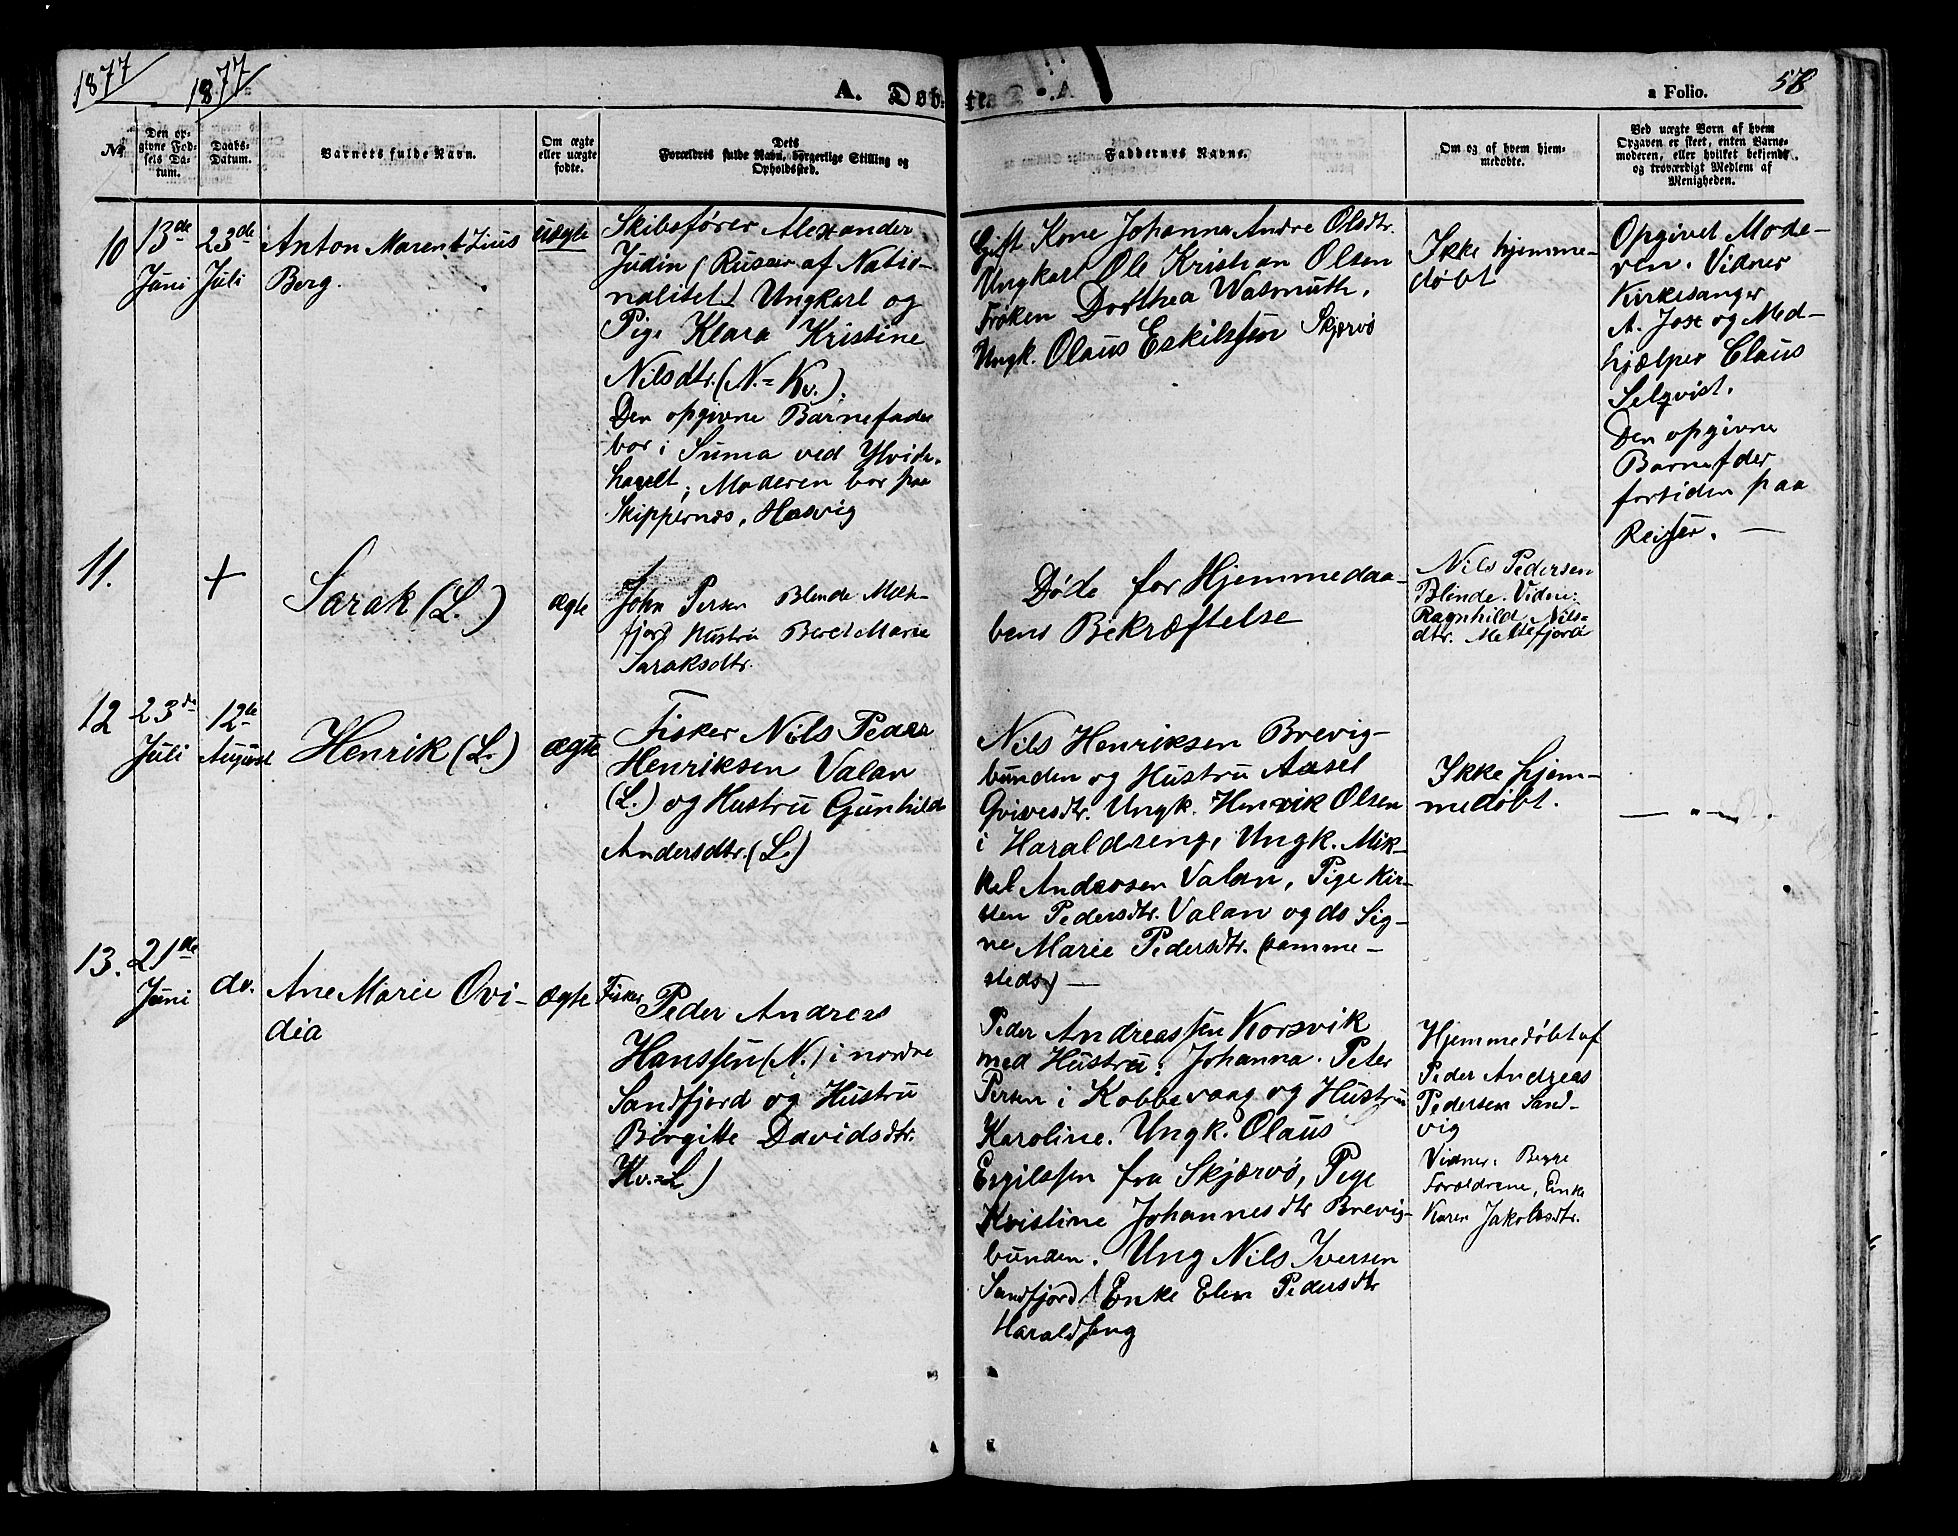 1877
1877
A. Døb-
te.
a Folio.
58
No
Den op-
givne Fød-
sels Da-
tum.
Daabs-
Datum.
Barnets fulde Navn.
Om ægte
eller uægte
fødte.
Dets
Forældres fulde Navn, borgerlige Stilling og
Opholdssted.
Faddernes Navne.
Om og af hvem hjem-
medøbte.
Ved uægte Børn af hvem
Opgaven er skeet, enten Barne-
moderen, eller hvilket bekjendt
og troværdigt Medlem af
Menigheden.
10
13de
Juni
23de
Juli
Anton Marentzius
Berg.
uægte
Skibsfører Alexander
Judin (Russer af Natio-
nalitet) Ungkarl og
Pige Klara Kristine
Nilsdtr. (N.=Kv.).
Den opgivne Barnefader
bor i Suma ved Hvide-
havet; Moderen bor paa
Skippernæs, Hasvig
Gift Kone Johanna Andre Olsdtr.
Ungkarl Ole Kristian Olsen
Frøken Dorthea Wasmuth,
Ungk. Olaus Eskilssen Skjærvø
Ikke hjemme-
døbt
Opgivet Mode-
ren. Vidner
Kirkesanger
A. Jose og Med-
hjælper Claus
Selqvist.
Den opgivne
Barnefder
fortiden paa
Reiser. —
11.
+
Sarak (L.)
ægte
John Persen Blende Meh-
fjord Hustru Beret Marie
Saraksdtr.
Døde før Hjemmedaa-
bens Bekræftelse
Nils Pedersen
Blende. Vidne:
Ragnhild Nils-
dtr. Mettefjord
12
23de
Juli
12te
August
Henrik (L.)
ægte
Fisker Nils Peder
Henriksen Valan
(L.) og Hustru Gunhild
Andersdtr. (L.)
Nils Henriksen Brevig-
bunden og Hustru Aasel
Grivesdtr. Ungk. Henrik Olsen
i Haraldseng, Ungk. Mik-
kel Andersen Valan, Pige Kir-
sten Pedersdtr. Valan og do Sig-
ne Marie Pedersdtr. (samme-
steds) —
Ikke hjem-
medøbt.
— " — .
13.
21de
Juni
do.
Ane Marie Ovi-
dia
Ægte
Fisker Peder Andreas
Hanssen (N.) i nordre
Sandfjord og Hustru
Birgitte Davidsdtr.
Kv.=L)
Peder Andreassen Korsvik
med Hustru: Johanna. Peter
Persen i Kobbevaag og Hustru
Karoline. Ungk. Olaus
Ergilssen fra Skjærvø, Pige
Kristine Johannesdtr Brevig-
bunden. Ung Nils Iversen
Sandfjord / Enke Elen Pedersdtr
Haraldseng
Hjemmedøbt af
Peder Andreas
Pedersen Sand-
vig
Vidner: Begge
Forældrene, Enke
Karen Jakobsdtr.